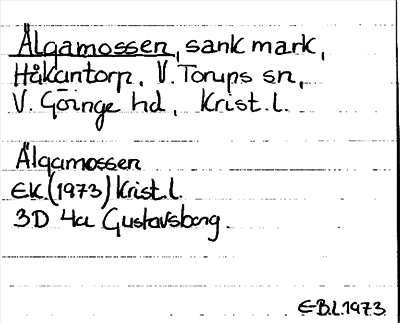 Älgamossen, sank mark,
Håkantorp, V. Torups sn,
V. Göinge hd, Krist. l.
Älgamossen
EK (1973) Krist. l.
3D 4a Gustavsborg
E-B.L. 1973